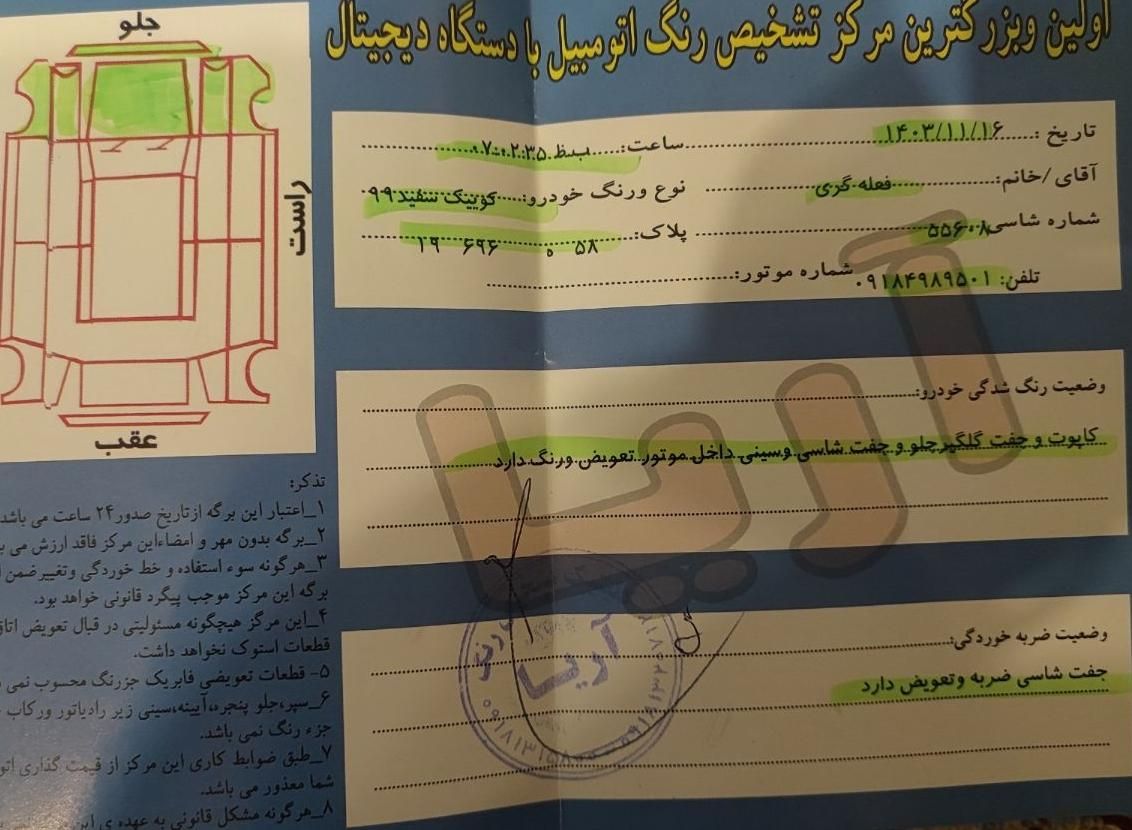 اولین وبزرگترین مرکز تشخیص رنگ اتومبیل با دستگاه دیجیتال
جلو
راست
عقب
تاریخ : ۱۴۰۳/۱۱/۱۶ ساعت: ۰۷:۰۲:۳۵ ب.ظ
آقای /خانم: فعله گری نوع ورنگ خودرو: کوییک سفید ۹۹
شماره شاسی ۵۵۶۰۸ پلاک: ۵۸ ه ۶۹۶ ۱۹
تلفن: ۰۹۱۸۴۹۸۹۵۰۱ شماره موتور:
وضعیت رنگ شدگی خودرو:
کاپوت و جفت گلگیر جلو و جفت شاسی و سینی داخل موتور تعویض ورنگ دارد
وضعیت ضربه خوردگی:
جفت شاسی ضربه وتعویض دارد
آریا
تذکر:
۱_اعتبار این برگه ازتاریخ صدور۲۴ ساعت می باشد
۲_برگه بدون مهر و امضاءاین مرکز فاقد ارزش می
۳_هرگونه سوء استفاده و خط خوردگی وتغییرضمن
برگه این مرکز موجب پیگرد قانونی خواهد بود.
۴_این مرکز هیچگونه مسئولیتی در قبال تعویض اتاق
قطعات استوک نخواهد داشت.
۵- قطعات تعویضی فابریک جزرنگ محسوب نمی
۶_سپر،جلو پنجره،آیینه،سینی زیر رادیاتور ورکاب
جزء رنگ نمی باشد.
۷_طبق ضوابط کاری این مرکز از قیمت گذاری
شما معذور می باشد.
۸_هرگونه مشکل قانونی به عهده ی این
آریا